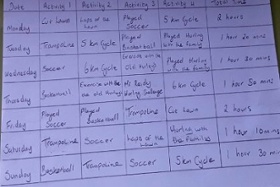 Date Activity 1 Activity 2 Activity 3 Activity 4 Total Time
Monday Cut Lawn laps of the lawn Played Soccer 5 km Cycle 2 hours
Tuesday Trampoline 5 km Cycle Played Basketball Played Hurling with the family 1 hour 20 mins
Wednesday Soccer 6 km Cycle Exercise with the Played Hurling with the family 1 hour 20 mins
Thursday Basketball Exercise with the 6 km Cycle 1 hour 50 mins
Friday Played Soccer Played Basketball Trampoline Cut Lawn 2 hours
Saturday Trampoline Soccer laps of the lawn Hurling with the families 1 hour 10 mins
Sunday Basketball Trampoline Soccer 5 km Cycle 1 hour 30 mins